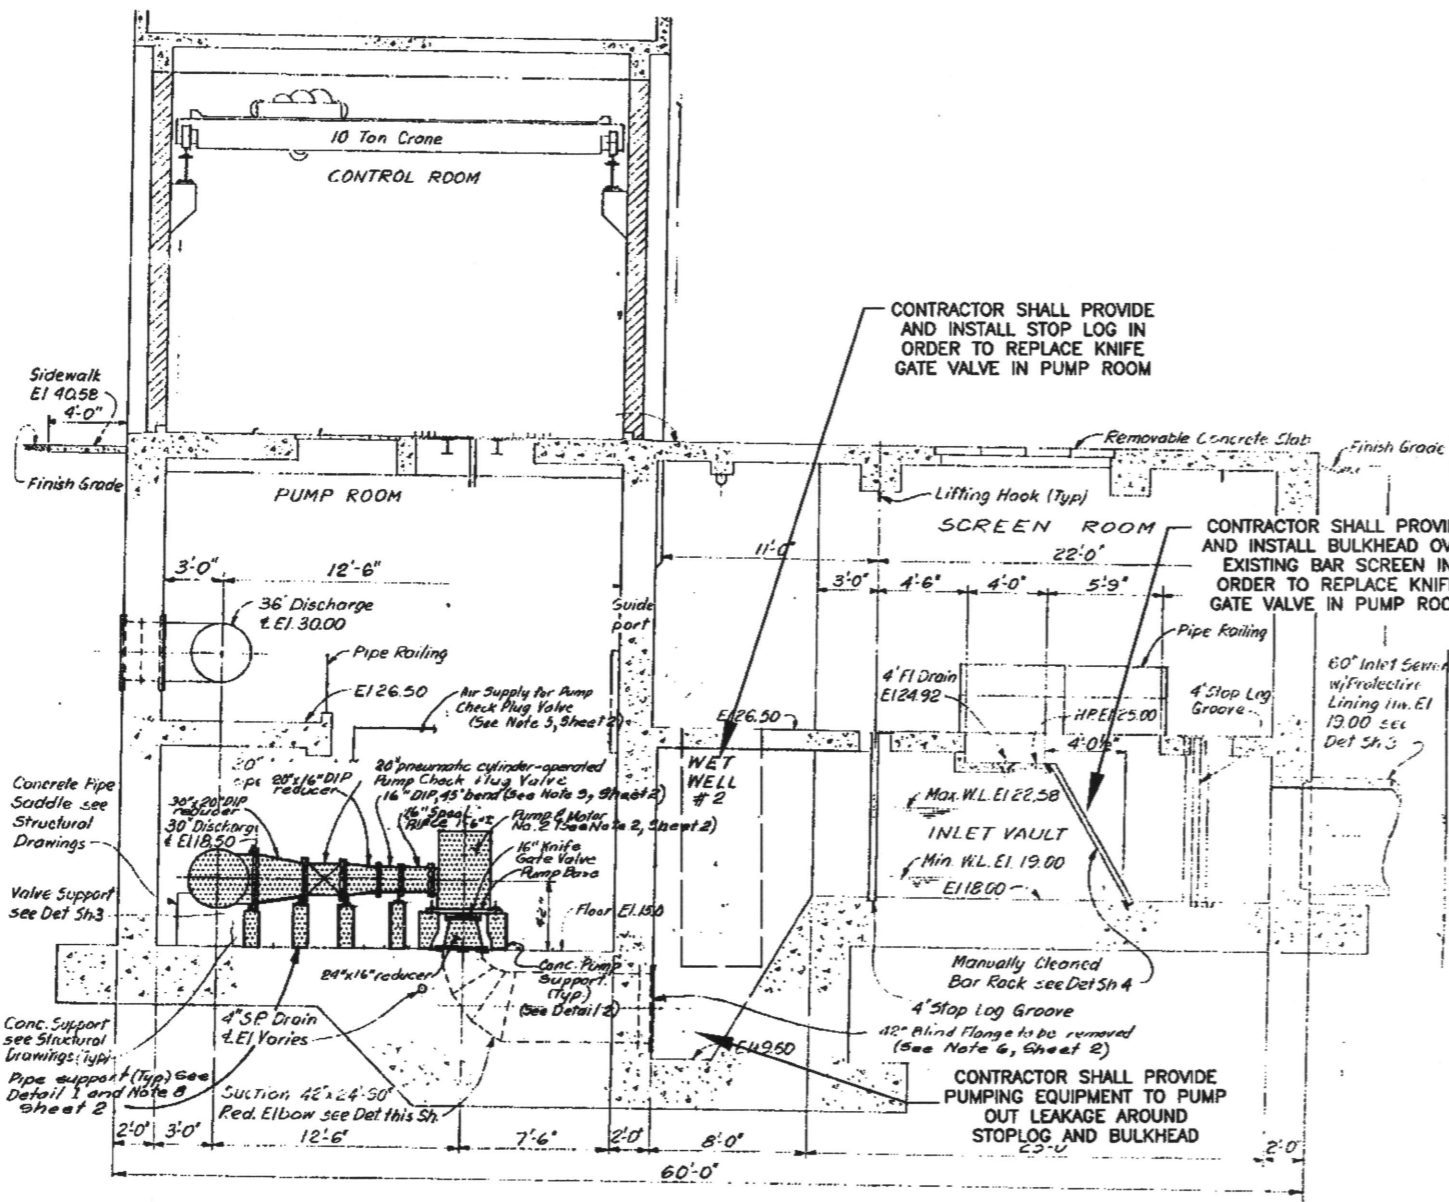 10 Ton Crane
CONTROL ROOM
CONTRACTOR SHALL PROVIDE
AND INSTALL STOP LOG IN
ORDER TO REPLACE KNIFE
GATE VALVE IN PUMP ROOM
Sidewalk
El 40.58
4'-0"
Finish Grade
PUMP ROOM
Removable Concrete Slab
Finish Grade
Lifting Hook (Typ)
SCREEN ROOM
CONTRACTOR SHALL PROVI
AND INSTALL BULKHEAD OV
EXISTING BAR SCREEN IN
ORDER TO REPLACE KNIF
GATE VALVE IN PUMP ROO
11'-0"
22'-0"
3'-0"
12'-6"
3'-0"
4'-6"
4'-0"
5'-9"
36" Discharge
℄ El. 30.00
Pipe Railing
El 26.50
Air Supply for Pump
Check Plug Valve
(See Note 5, Sheet 2)
Pipe Railing
4" Fl Drain
El 24.92
H.P. El 25.00
4'-0½"
4" Stop Log
Groove
60" Inlet Sewer
w/Protective
Lining Inv. El
19.00 see
Det Sh 3
El 26.50
WET
WELL
#2
Max. W.L. El 22.58
INLET VAULT
Min. W.L. El. 19.00
El 18.00
Concrete Pipe
Saddle see
Structural
Drawings
20"
20"x16" DIP
reducer
20" pneumatic cylinder-operated
Pump Check Plug Valve
16" DIP, 45° bend (See Note 5, Sheet 2)
30"x20" DIP
reducer
30" Discharge
℄ El 18.50
Pump & Motor
No. 2 (See Note 2, Sheet 2)
16" Knife
Gate Valve
Pump Base
Valve Support
see Det Sh 3
Floor El. 15.0
24"x16" reducer
Conc. Pump
Support
(Typ.)
(See Detail 2)
Manually Cleaned
Bar Rack see Det Sh 4
4" Stop Log Groove
42" Blind Flange to be removed
(See Note 6, Sheet 2)
4" S.P. Drain
℄ El Varies
Conc. Support
see Structural
Drawings (Typ)
Pipe support (Typ) See
Detail 1 and Note 8
Sheet 2
Suction 42"x24"-90°
Red. Elbow see Det this Sh.
CONTRACTOR SHALL PROVIDE
PUMPING EQUIPMENT TO PUMP
OUT LEAKAGE AROUND
STOPLOG AND BULKHEAD
2'-0"
3'-0"
12'-6"
7'-6"
2'-0"
8'-0"
2'-0"
60'-0"